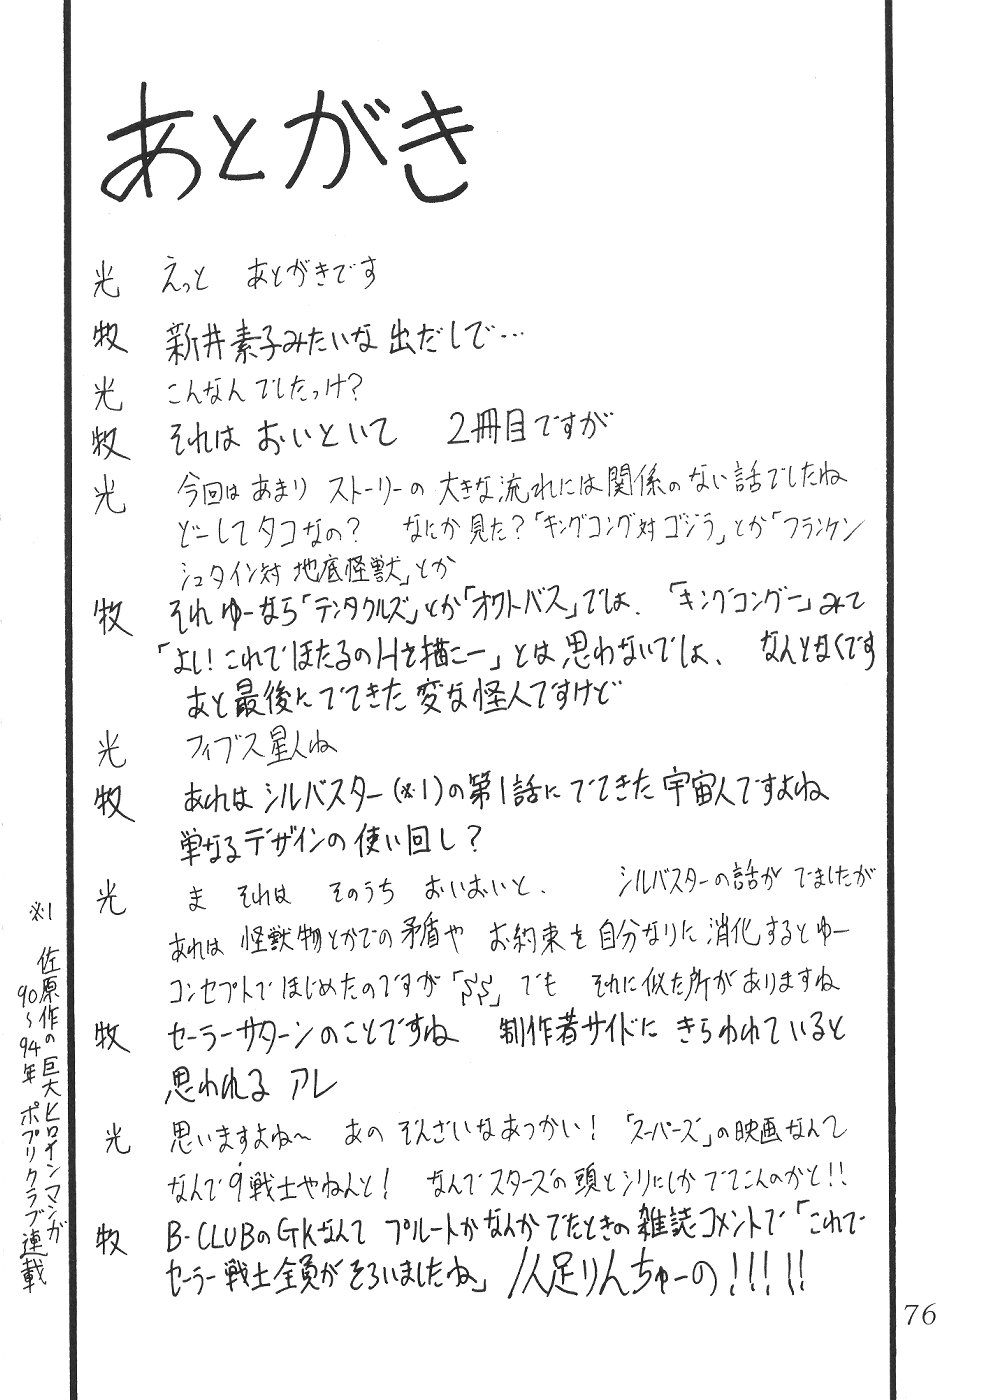 あとがき
光 えっと あとがきです
牧 新井素子みたいな出だしで…
光 こんなんでしたっけ?
牧 それは おいといて 2冊目ですが
光 今回は あまり ストーリーの 大きな流れには関係のない話でしたね
どーしてタコなの? なにか見た?「キングコング対ゴジラ」とか「フランケン
シュタイン対 地底怪獣」とか
牧 それゆーなら「テンタクルズ」とか「オクトパス」では、「キングコングー」みて
「よし!これでほたるのHを描こー」とは思わないでしょ、なんとなくです
あと最後にでてきた変な怪人ですけど
光 フィブス星人ね
牧 あれはシルバスター(※1)の第1話にでてきた宇宙人ですよね
単なるデザインの使い回し?
光 ま それは そのうち おいおいと、 シルバスターの話がでましたが
あれは 怪獣物とかでの矛盾や お約束を自分なりに消化するとゆー
コンセプトではじめたのですが「SS」でも それに似た所がありますね
牧 セーラーサターンのことですね 制作者サイドにきらわれていると
思われる アレ
光 思いますよね〜 あの ぞんざいなあつかい!「スーパーズ」の映画なんて
なんで9戦士やねんと! なんでスターズの頭とシリにしかでてこんのかと!!
牧 B-CLUBのGKなんて プルートかなんかでたときの雑誌コメントで「これで
セーラー戦士全員がそろいましたね」1人足りんちゅーの!!!!!
※1 佐原作の巨大ヒロインマンガ
90〜94年 ポプリクラブ連載
76